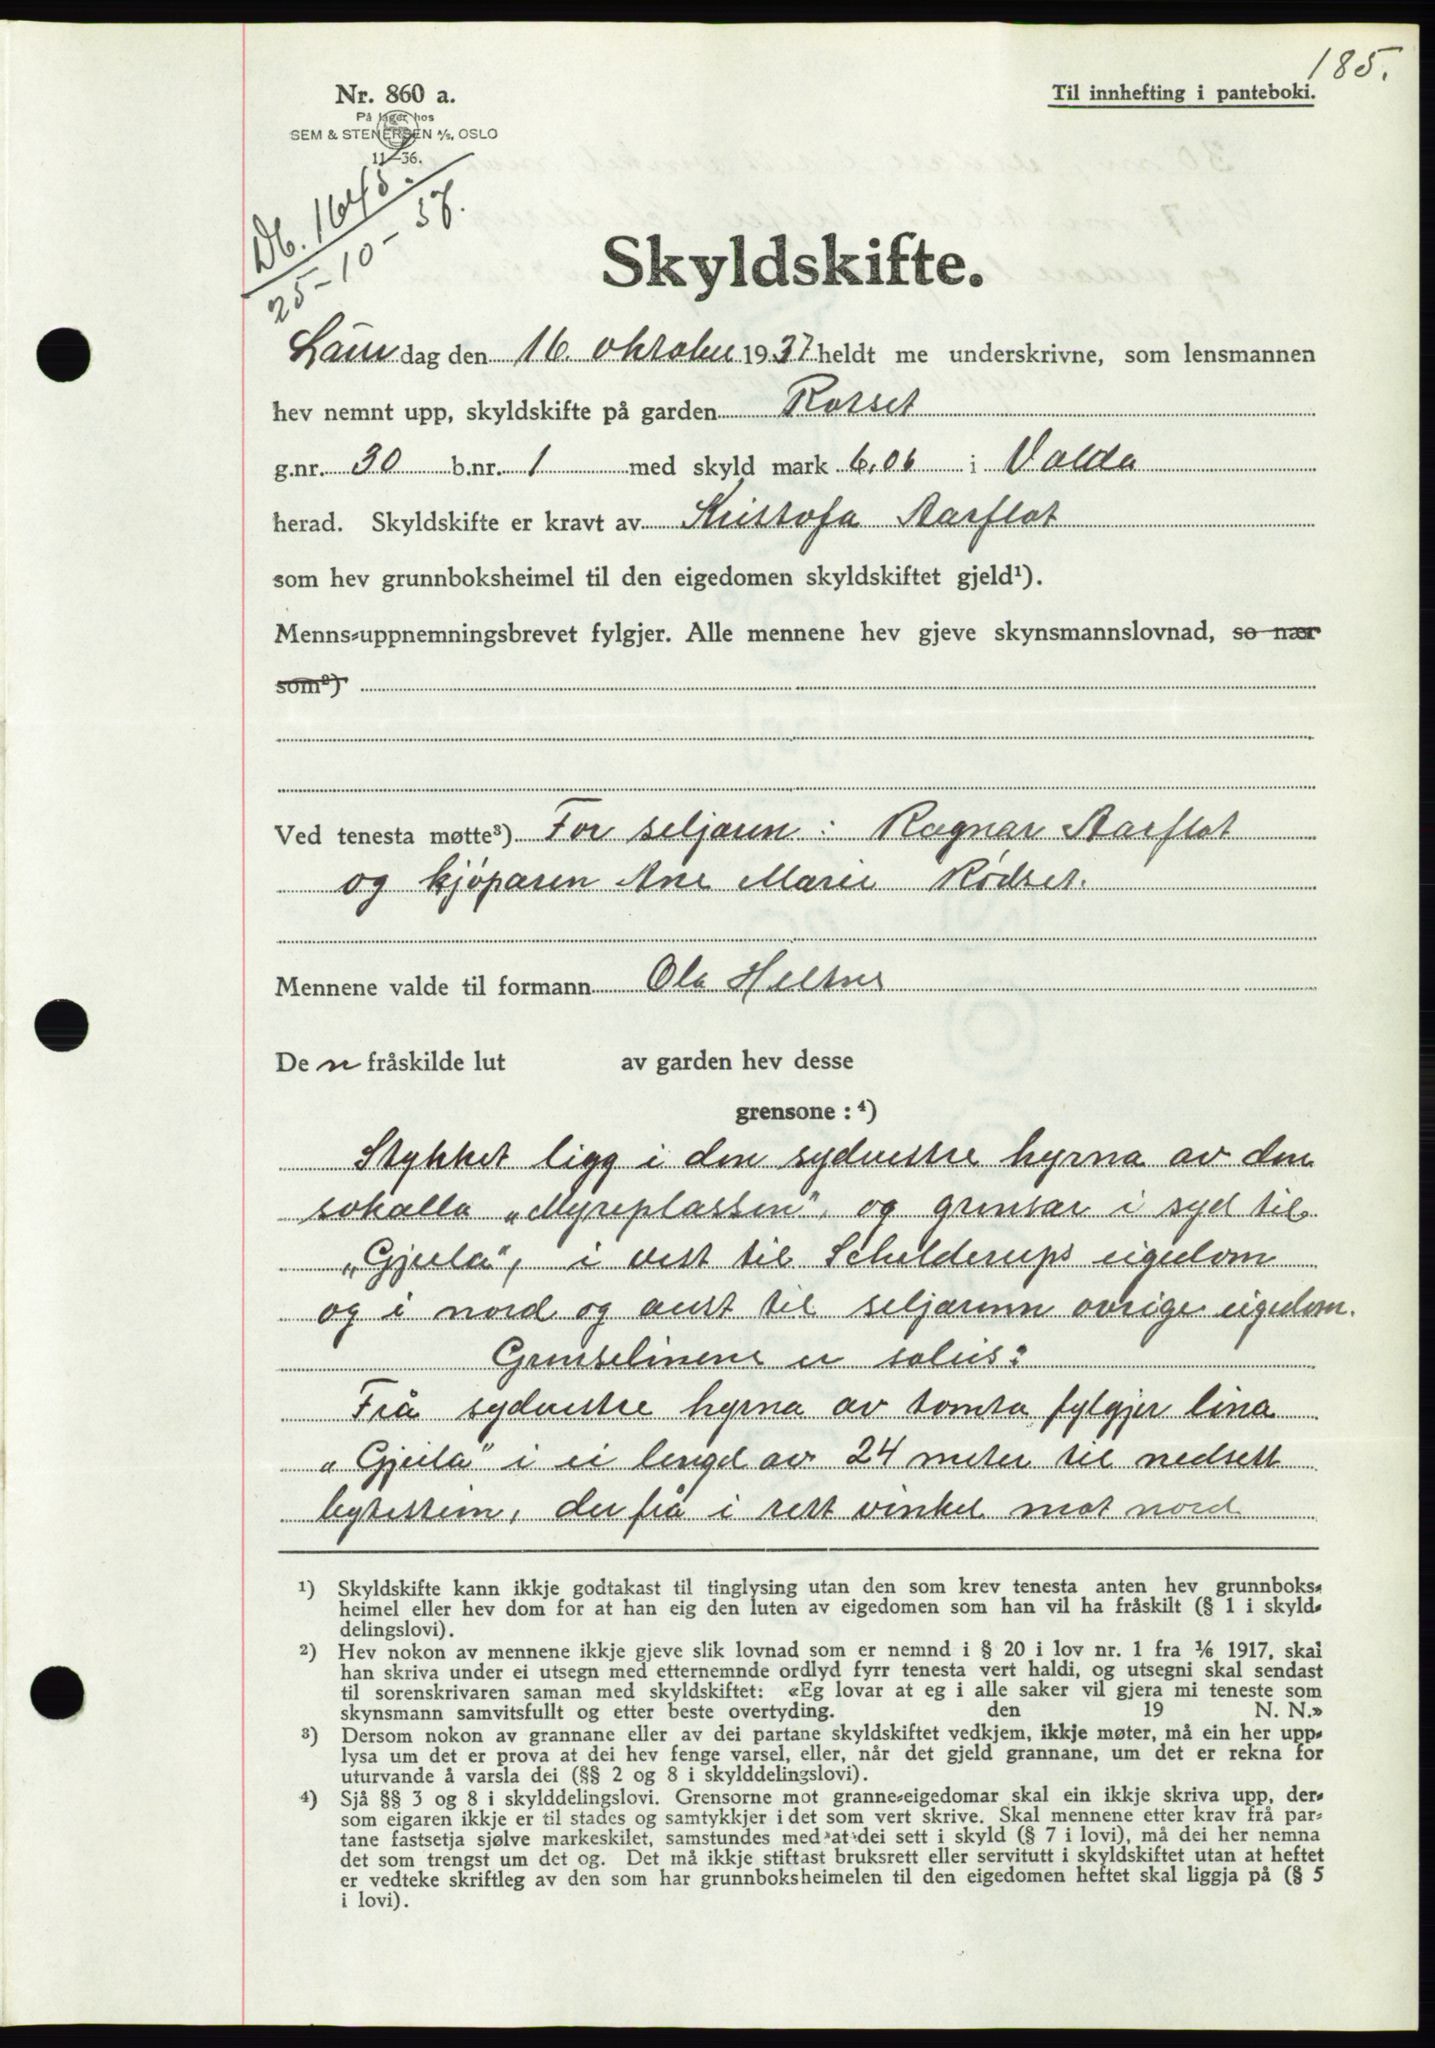 185.
Nr. 860 a.
Til innhefting i panteboki.
På lager hos
SEM & STENERSEN A/S, OSLO
11-36.
Db. 1645.
25-10-37.
Skyldskifte.
Laur dag den 16. oktober 1937 heldt me underskrivne, som lensmannen
hev nemnt upp, skyldskifte på garden Rotset
g.nr. 30 b.nr. 1 med skyld mark 6,06 i Volda
herad. Skyldskifte er kravt av Kristofa Aarflot
som hev grunnboksheimel til den eigedomen skyldskiftet gjeld¹).
Menns-uppnemningsbrevet fylgjer. Alle mennene hev gjeve skynsmannslovnad, so nær
som²)
Ved tenesta møtte³) For seljaren: Ragnar Aarflot
og kjöparen Ane Marie Rødset.
Mennene valde til formann Ola Heltne
De n fråskilde lut av garden hev desse
grensone : ⁴)
Stykket ligg i den sydvestre hyrna av den
sokalla „Myreplassen", og grensar i syd til
„Gjeila", i vest til Schelderups eigedom
og i nord og aust til seljarenn ovrige eigedom.
Grenselinene er soleis:
Frå sydvestre hyrna av tomta fylgjer lina
„Gjeila" i ei lengd av 24 meter til nedsett
bytestein, derfrå i rett vinkel mot nord
¹) Skyldskifte kann ikkje godtakast til tinglysing utan den som krev tenesta anten hev grunnboks-
heimel eller hev dom for at han eig den luten av eigedomen som han vil ha fråskilt (§ 1 i skyld-
delingslovi).
²) Hev nokon av mennene ikkje gjeve slik lovnad som er nemnd i § 20 i lov nr. 1 fra 1/6 1917, skal
han skriva under ei utsegn med etternemnde ordlyd fyrr tenesta vert haldi, og utsegni skal sendast
til sorenskrivaren saman med skyldskiftet: «Eg lovar at eg i alle saker vil gjera mi teneste som
skynsmann samvitsfullt og etter beste overtyding. den 19 N. N.»
³) Dersom nokon av grannane eller av dei partane skyldskiftet vedkjem, ikkje møter, må ein her upp-
lysa um det er prova at dei hev fenge varsel, eller, når det gjeld grannane, um det er rekna for
uturvande å varsla dei (§§ 2 og 8 i skylddelingslovi).
⁴) Sjå §§ 3 og 8 i skylddelingslovi. Grensorne mot granne-eigedomar skal ein ikkje skriva upp, der-
som eigaren ikkje er til stades og samtykkjer i det som vert skrive. Skal mennene etter krav frå par-
tane fastsetja sjølve markeskilet, samstundes med at dei sett i skyld (§ 7 i lovi), må dei her nemna
det som trengst um det og. Det må ikkje stiftast bruksrett eller servitutt i skyldskiftet utan at heftet
er vedteke skriftleg av den som har grunnboksheimelen til den eigedomen heftet skal liggja på (§ 5
i lovi).